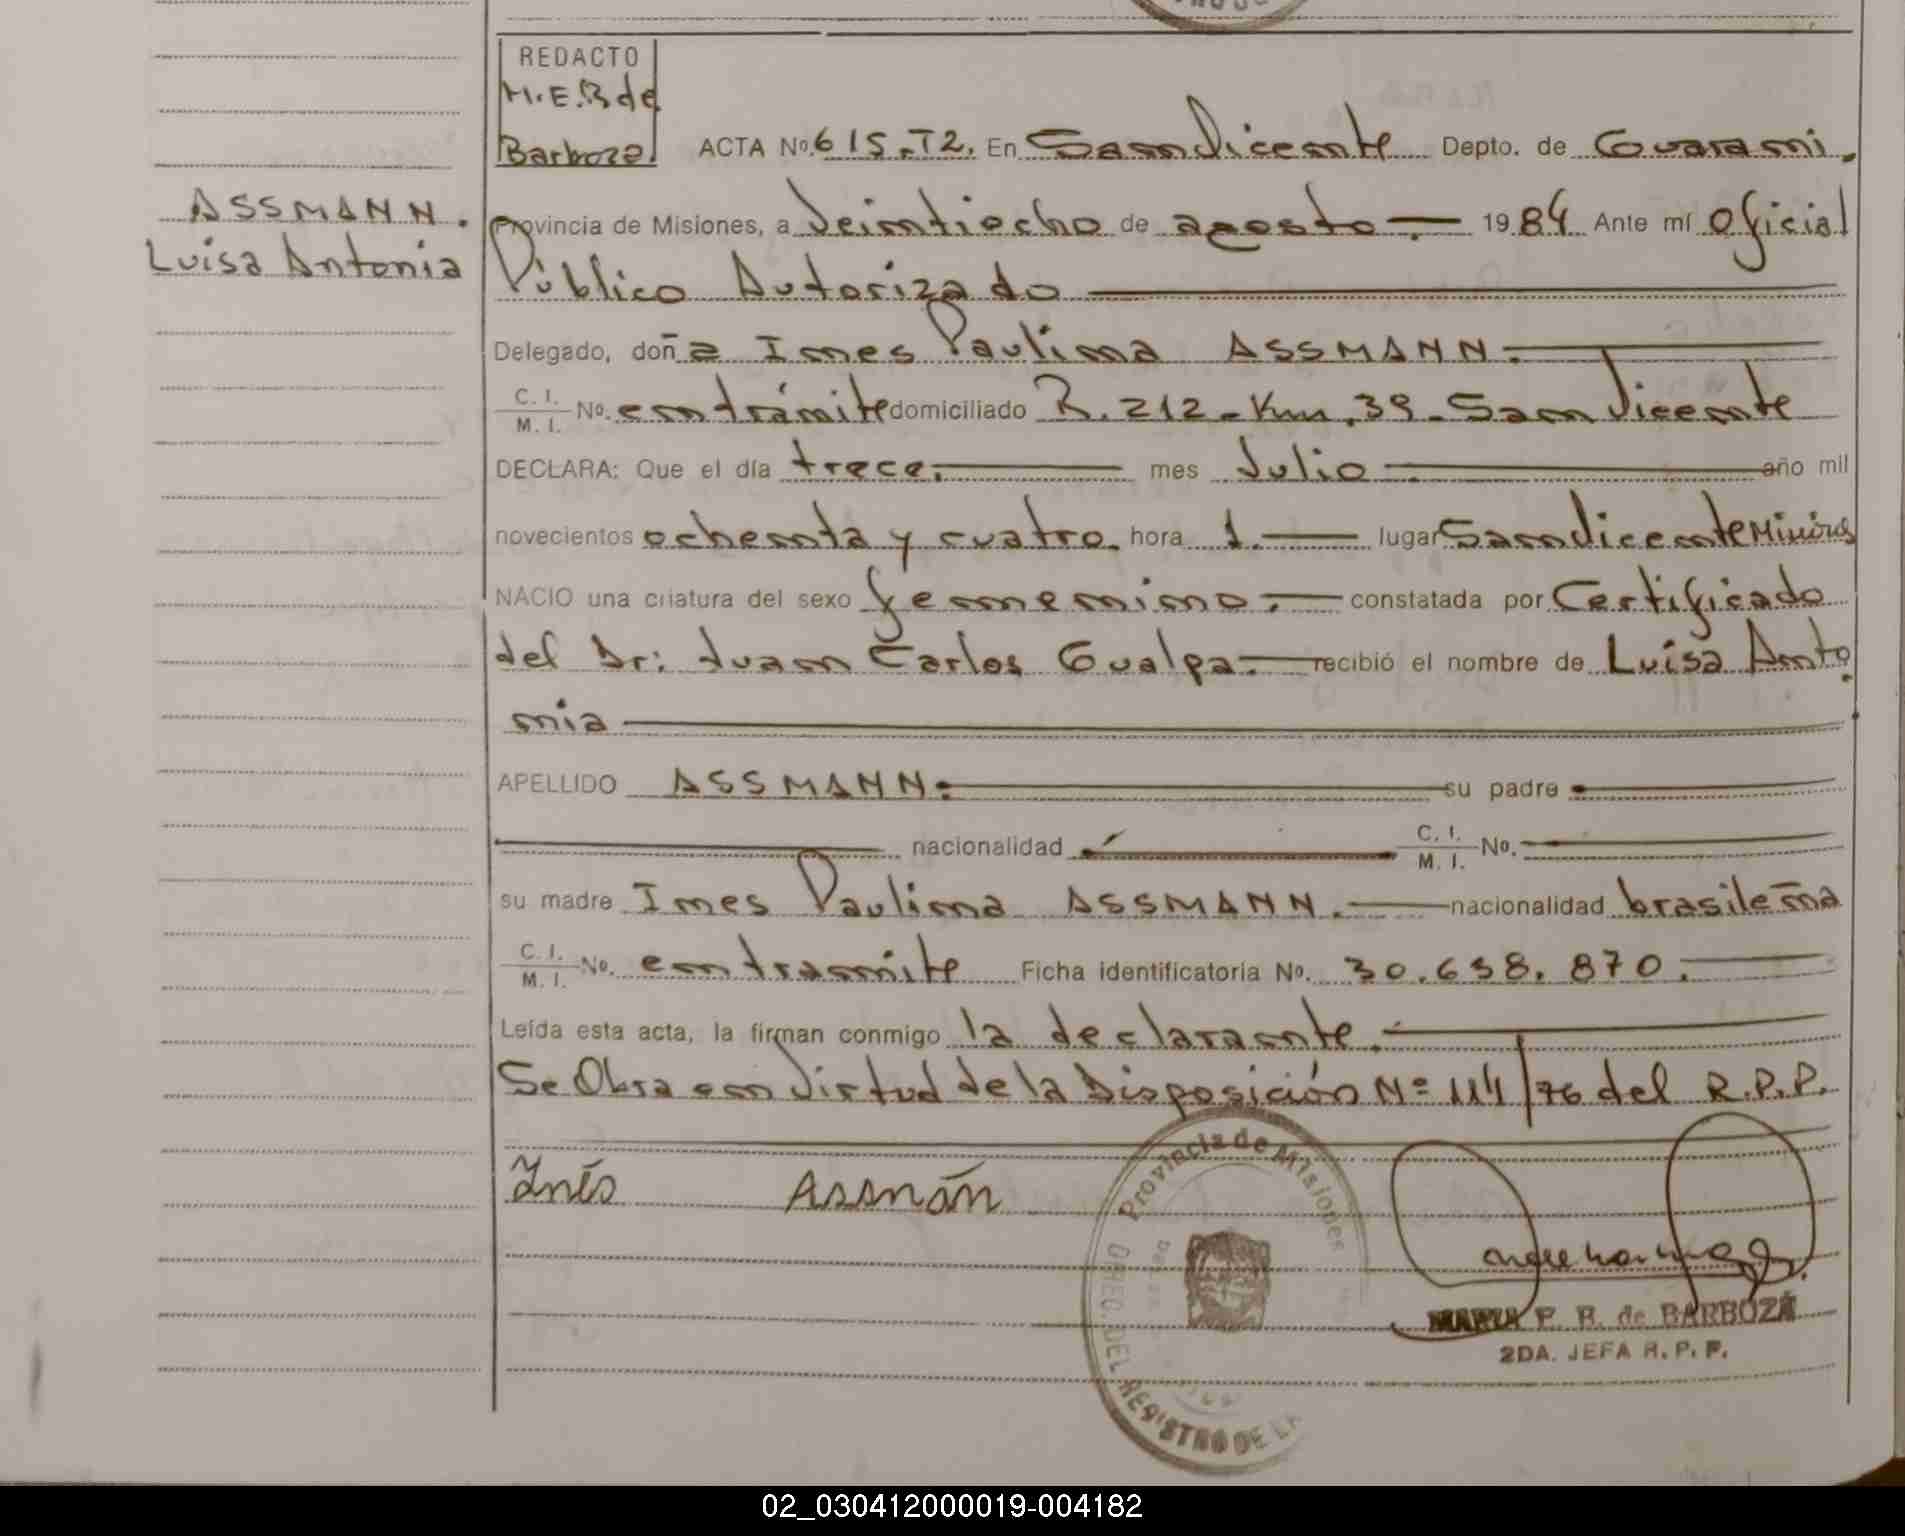 REDACTO
M.E.B de
Barboza.
ACTA Nº 615.T2. En San Vicente Depto. de Guarani.
ASSMANN.
Luisa Antonia
Provincia de Misiones, a Veintiocho de agosto. 1984 Ante mí Oficial
Público Autorizado
Delegado, doña Ines Paulina ASSMANN.
C. I. / M. I. Nº. en trámite domiciliado R. 212 - Km. 39 - San Vicente
DECLARA: Que el día trece. mes Julio. año mil
novecientos ochenta y cuatro. hora 1. lugar San Vicente Misiones
NACIO una criatura del sexo femenino. constatada por Certificado
del Dr: Juan Carlos Gualpa. recibió el nombre de Luisa Anto
nia
APELLIDO ASSMANN. su padre
nacionalidad C. I. / M. I. Nº.
su madre Ines Paulina ASSMANN. nacionalidad brasileña
C. I. / M. I. Nº. en tramite Ficha identificatoria Nº. 30.638.870.
Leída esta acta, la firman conmigo la declarante.
Se Obra en Virtud de la Disposición Nº 114/76 del R.P.P.
Inés Assmán
Provincia de Misiones
DIREC. DEL REGISTRO DE LA
MARIA E. B. de BARBOZA
2DA. JEFA R. P. P.
02_030412000019-004182